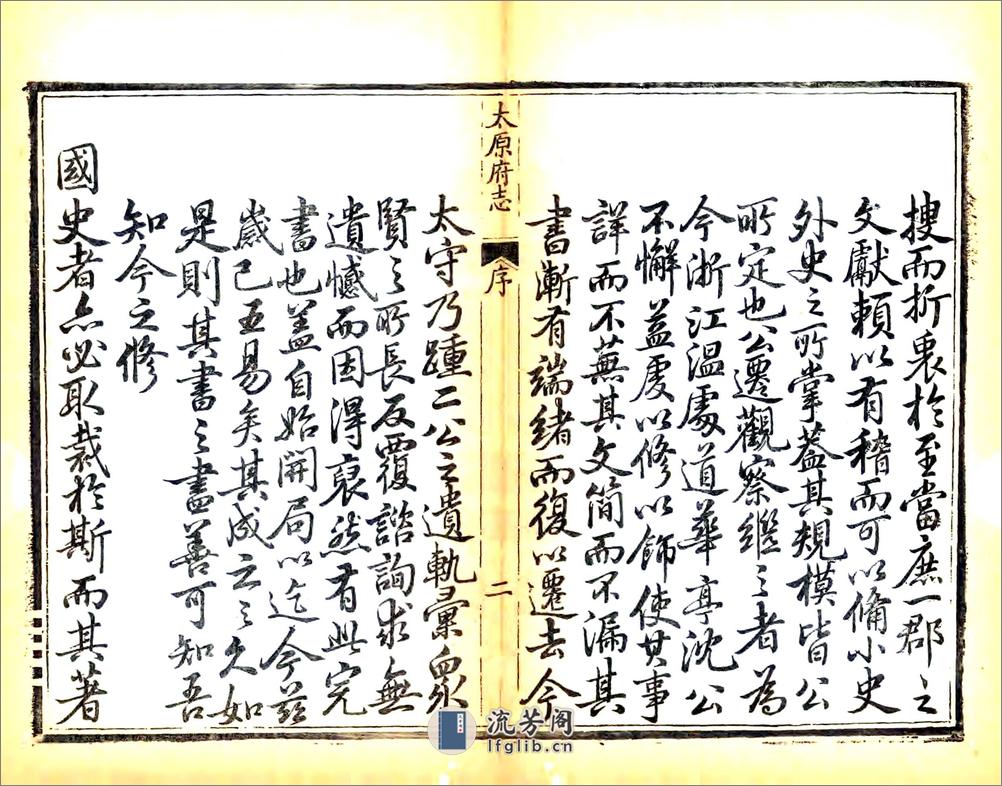 搜而折衷於至當庶一郡之
文獻賴以有稽而可以備小史
外史之所掌葢其規模皆公
所定也公遷觀察繼之者為
今浙江溫處道華亭沈公
不懈益虔以修以飾使其事
詳而不蕪其文簡而不漏其
書漸有端緒而復以遷去今
太原府志
序
二
太守乃踵二公之遺軌彙眾
賢之所長反覆諮詢求無
遺憾而因得裒然有此完
書也盖自始開局以迄今茲
歲已五易矣其成之之久如
是則其書之盡善可知吾
知今之修
國史者亦必取裁於斯而其著
流芳阁
lfglib.cn